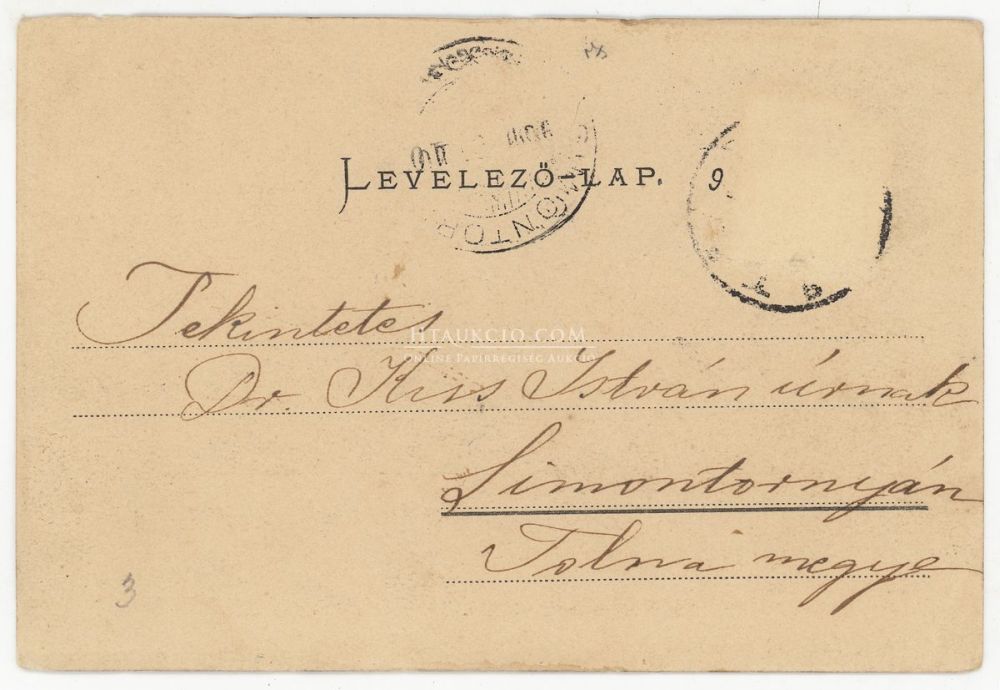 LEVELEZŐ-LAP.
9
Tekintetes
HTAUKCIO.COM
ONLINE PAPÍRRÉGISÉG AUKCIÓ
Dr. Kiss István úrnak
Simontornyán
Tolna megye
3